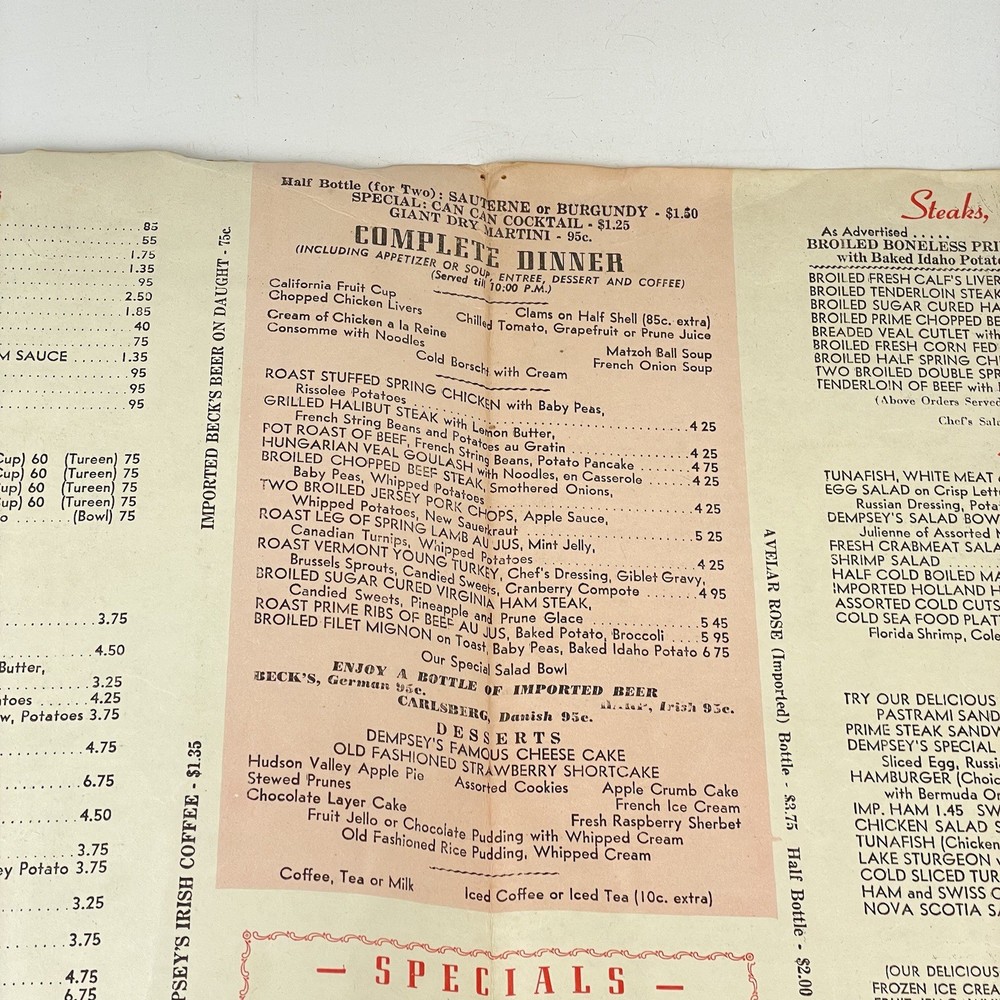 85
55
1.75
1.35
95
2.50
1.85
40
75
M SAUCE ...... 1.35
.95
95
95
Cup) 60 (Tureen) 75
Cup) 60 (Tureen) 75
Cup) 60 (Tureen) 75
Cup) 60 (Tureen) 75
(Bowl) 75
3.75
4.50
Butter,
3.25
toes ...... 4.25
w, Potatoes 3.75
4.75
6.75
4.50
3.75
ey Potato 3.75
3.25
3.75
4.75
6.75
IMPORTED BECK'S BEER ON DAUGHT - 75c.
PSEY'S IRISH COFFEE - $1.35
Half Bottle (for Two): SAUTERNE or BURGUNDY - $1.50
SPECIAL: CAN CAN COCKTAIL - $1.25
GIANT DRY MARTINI - 95c.
COMPLETE DINNER
(INCLUDING APPETIZER OR SOUP, ENTREE, DESSERT AND COFFEE)
(Served till 10:00 P.M.)
California Fruit Cup Clams on Half Shell (85c. extra)
Chopped Chicken Livers Chilled Tomato, Grapefruit or Prune Juice
Cream of Chicken a la Reine Matzoh Ball Soup
Consomme with Noodles French Onion Soup
Cold Borscht with Cream
ROAST STUFFED SPRING CHICKEN with Baby Peas,
Rissolee Potatoes ...... 4 25
GRILLED HALIBUT STEAK with Lemon Butter,
French String Beans and Potatoes au Gratin ...... 4 25
POT ROAST OF BEEF, French String Beans, Potato Pancake ...... 4 75
HUNGARIAN VEAL GOULASH with Noodles, en Casserole ...... 4 25
BROILED CHOPPED BEEF STEAK, Smothered Onions,
Baby Peas, Whipped Potatoes ...... 4 25
TWO BROILED JERSEY PORK CHOPS, Apple Sauce,
Whipped Potatoes, New Sauerkraut ...... 5 25
ROAST LEG OF SPRING LAMB AU JUS, Mint Jelly,
Canadian Turnips, Whipped Potatoes ...... 4 25
ROAST VERMONT YOUNG TURKEY, Chef's Dressing, Giblet Gravy,
Brussels Sprouts, Candied Sweets, Cranberry Compote ...... 4 95
BROILED SUGAR CURED VIRGINIA HAM STEAK,
Candied Sweets, Pineapple and Prune Glace ...... 5 45
ROAST PRIME RIBS OF BEEF AU JUS, Baked Potato, Broccoli ..... 5 95
BROILED FILET MIGNON on Toast, Baby Peas, Baked Idaho Potato 6 75
Our Special Salad Bowl
ENJOY A BOTTLE OF IMPORTED BEER
BECK'S, German 95c. Irish 95c.
CARLSBERG, Danish 95c.
DESSERTS
DEMPSEY'S FAMOUS CHEESE CAKE
OLD FASHIONED STRAWBERRY SHORTCAKE
Hudson Valley Apple Pie Assorted Cookies Apple Crumb Cake
Stewed Prunes French Ice Cream
Chocolate Layer Cake Fresh Raspberry Sherbet
Fruit Jello or Chocolate Pudding with Whipped Cream
Old Fashioned Rice Pudding, Whipped Cream
Coffee, Tea or Milk Iced Coffee or Iced Tea (10c. extra)
— SPECIALS —
AVELAR ROSE (Imported) Bottle - $3.75 Half Bottle - $2.00
Steaks,
As Advertised .....
BROILED BONELESS PRI
with Baked Idaho Potato
BROILED FRESH CALF'S LIVER
BROILED TENDERLOIN STEAK
BROILED SUGAR CURED HA
BROILED PRIME CHOPPED BE
BREADED VEAL CUTLET with
BROILED FRESH CORN FED
BROILED HALF SPRING CHI
TWO BROILED DOUBLE SPR
TENDERLOIN OF BEEF with
(Above Orders Served
Chef's Sala
TUNAFISH, WHITE MEAT
EGG SALAD on Crisp Lett
Russian Dressing, Potat
DEMPSEY'S SALAD BOW
Julienne of Assorted
FRESH CRABMEAT SALA
SHRIMP SALAD
HALF COLD BOILED MA
IMPORTED HOLLAND H
ASSORTED COLD CUTS
COLD SEA FOOD PLATT
Florida Shrimp, Cole
TRY OUR DELICIOUS
PASTRAMI SAND
PRIME STEAK SANDW
DEMPSEY'S SPECIAL
Sliced Egg, Russi
HAMBURGER (Choic
with Bermuda On
IMP. HAM 1.45 SW
CHICKEN SALAD S
TUNAFISH (Chicken
LAKE STURGEON
COLD SLICED TUR
HAM and SWISS C
NOVA SCOTIA SA
(OUR DELICIOUS
FROZEN ICE CREA